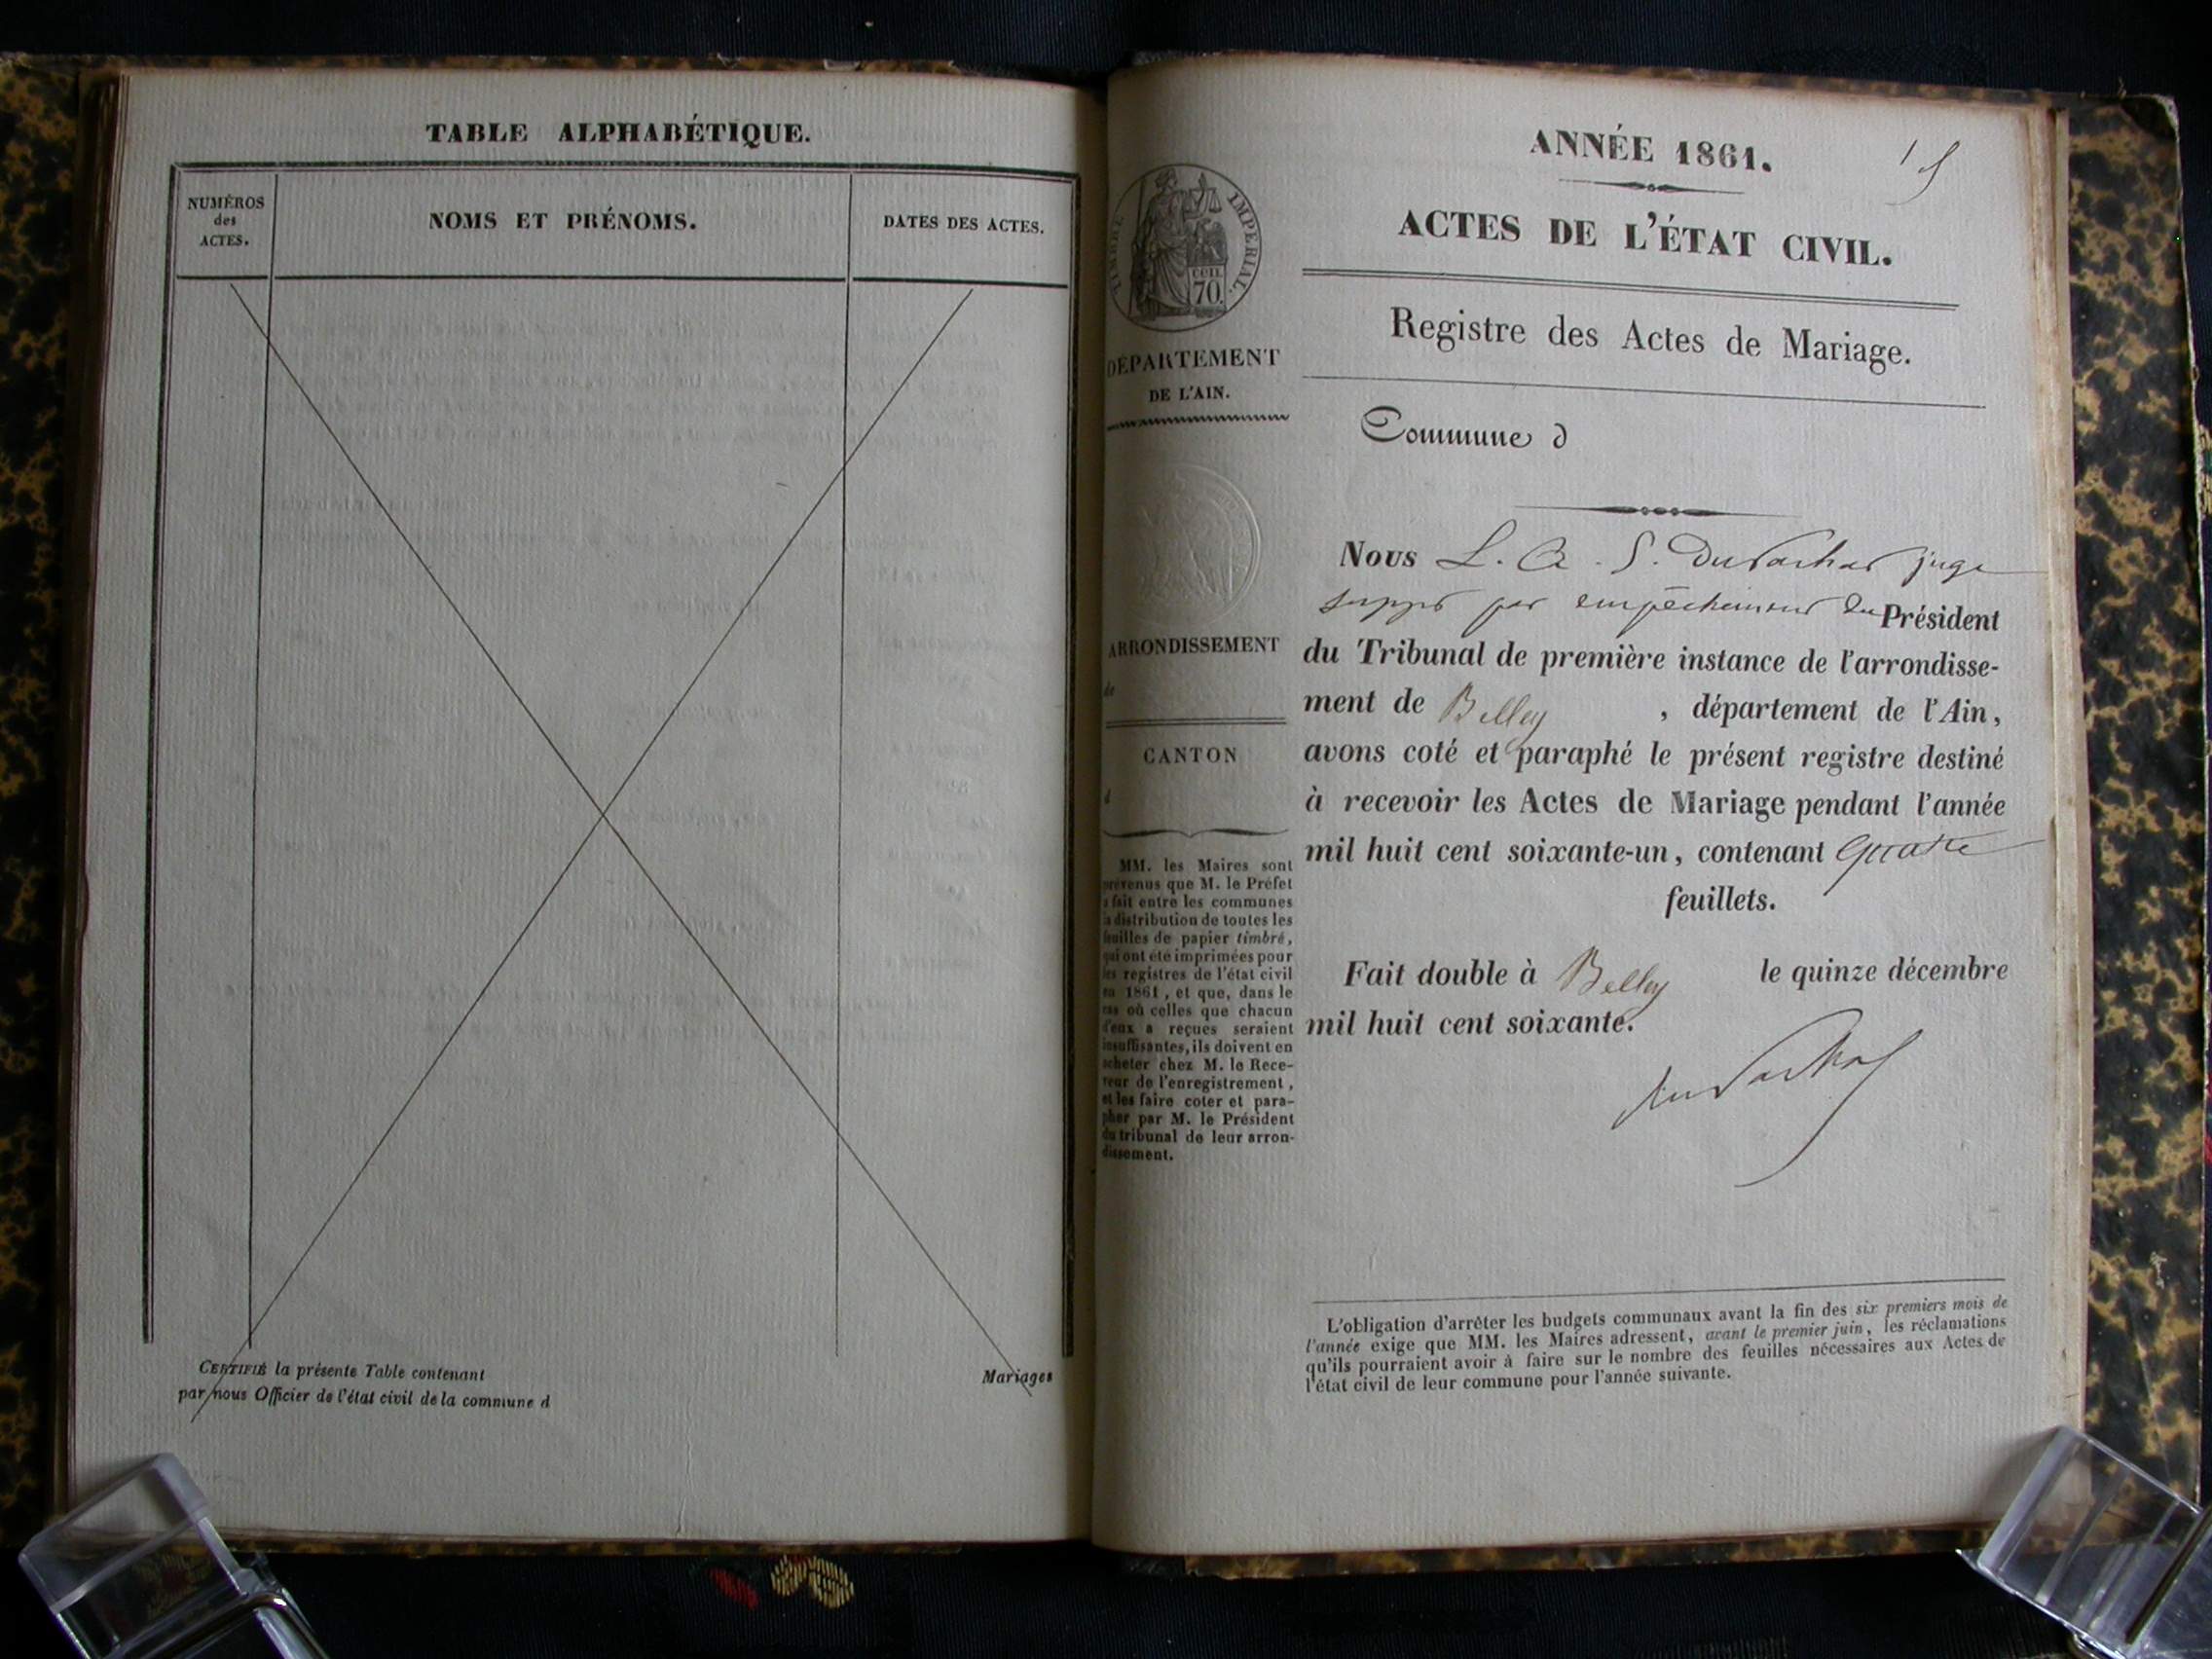 TABLE ALPHABÉTIQUE.
NUMÉROS
des
ACTES.
NOMS ET PRÉNOMS.
DATES DES ACTES.
CERTIFIÉ la présente Table contenant Mariages
par nous Officier de l'état civil de la commune d
ANNÉE 1861.
ACTES DE L'ÉTAT CIVIL.
TIMBRE IMPÉRIAL.
CEN.
70.
DÉPARTEMENT
DE L'AIN.
Registre des Actes de Mariage.
Commune d
ARRONDISSEMENT
de
CANTON
d
MM. les Maires sont
prévenus que M. le Préfet
a fait entre les communes
la distribution de toutes les
feuilles de papier timbré,
qui ont été imprimées pour
les registres de l'état civil
en 1861, et que, dans le
cas où celles que chacun
d'eux a reçues seraient
insuffisantes, ils doivent en
acheter chez M. le Rece-
veur de l'enregistrement,
et les faire coter et para-
pher par M. le Président
du tribunal de leur arron-
dissement.
Nous L. A. S. juge
par empêchement du Président
du Tribunal de première instance de l'arrondisse-
ment de Belley , département de l'Ain,
avons coté et paraphé le présent registre destiné
à recevoir les Actes de Mariage pendant l'année
mil huit cent soixante-un, contenant quatre
feuillets.
Fait double à Belley le quinze décembre
mil huit cent soixante.
L'obligation d'arrêter les budgets communaux avant la fin des six premiers mois de
l'année exige que MM. les Maires adressent, avant le premier juin, les réclamations
qu'ils pourraient avoir à faire sur le nombre des feuilles nécessaires aux Actes de
l'état civil de leur commune pour l'année suivante.